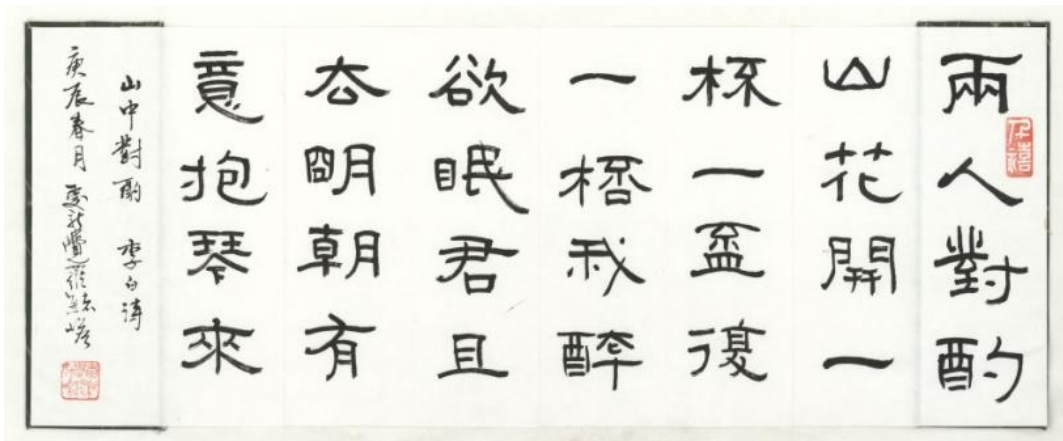 兩人對酌
山花開一
杯一盃復
一桮我醉
欲眠君且
去明朝有
意抱琴來
山中對酌 李白詩
庚辰春月